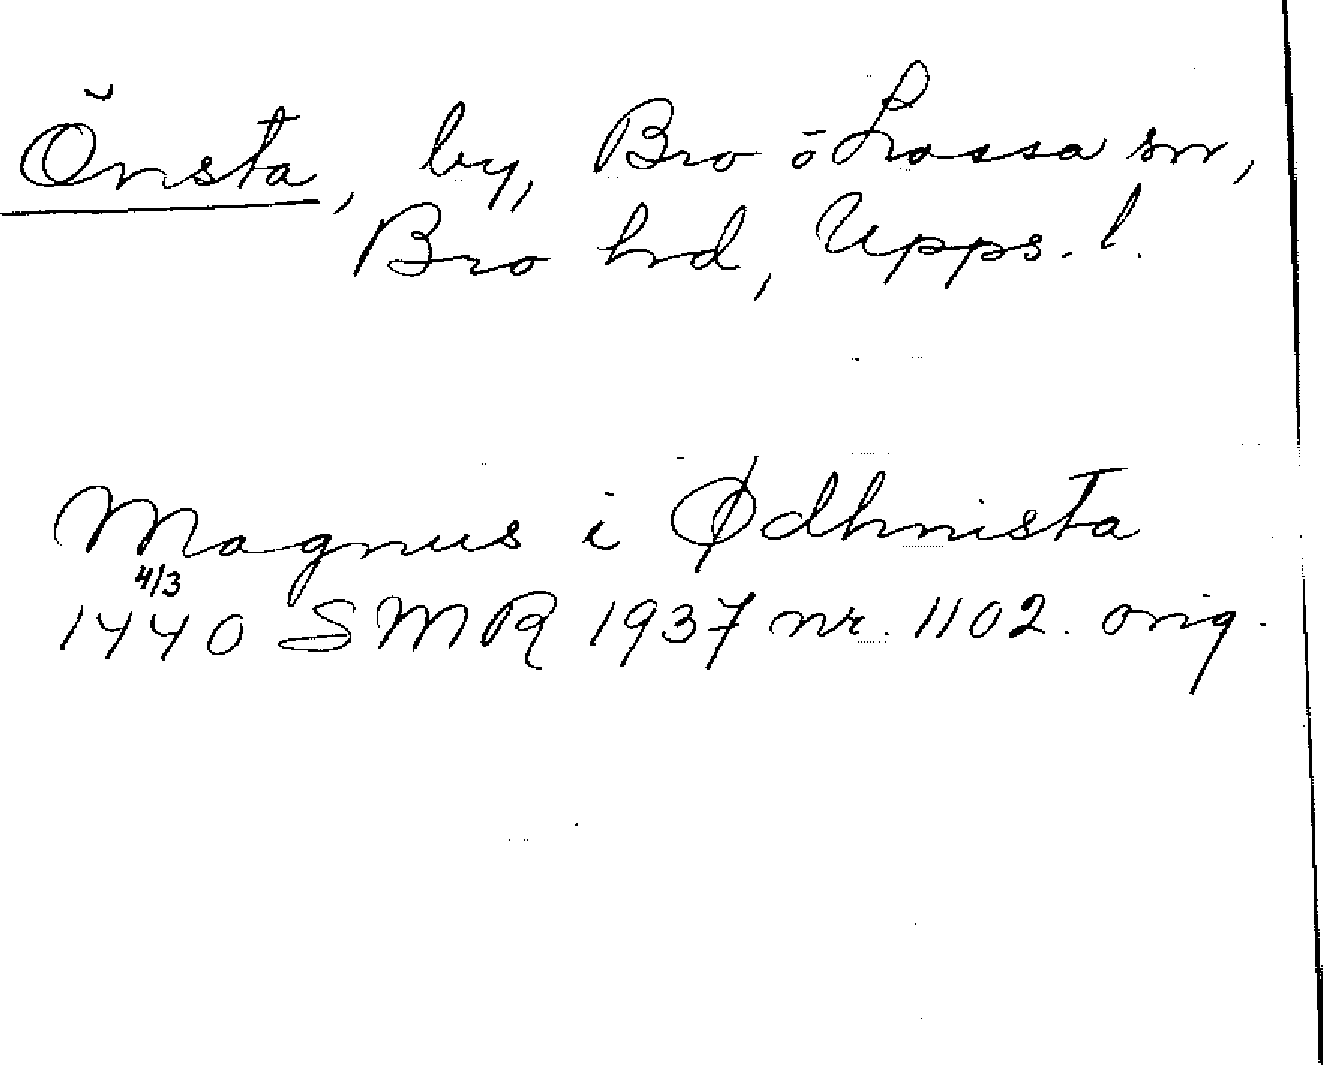 Önsta, by, Bro ō Lossa sn,
Bro hd, Upps. l.
Magnus i Ødhnista
4/3
1440 SMR 1937 nr. 1102. orig.